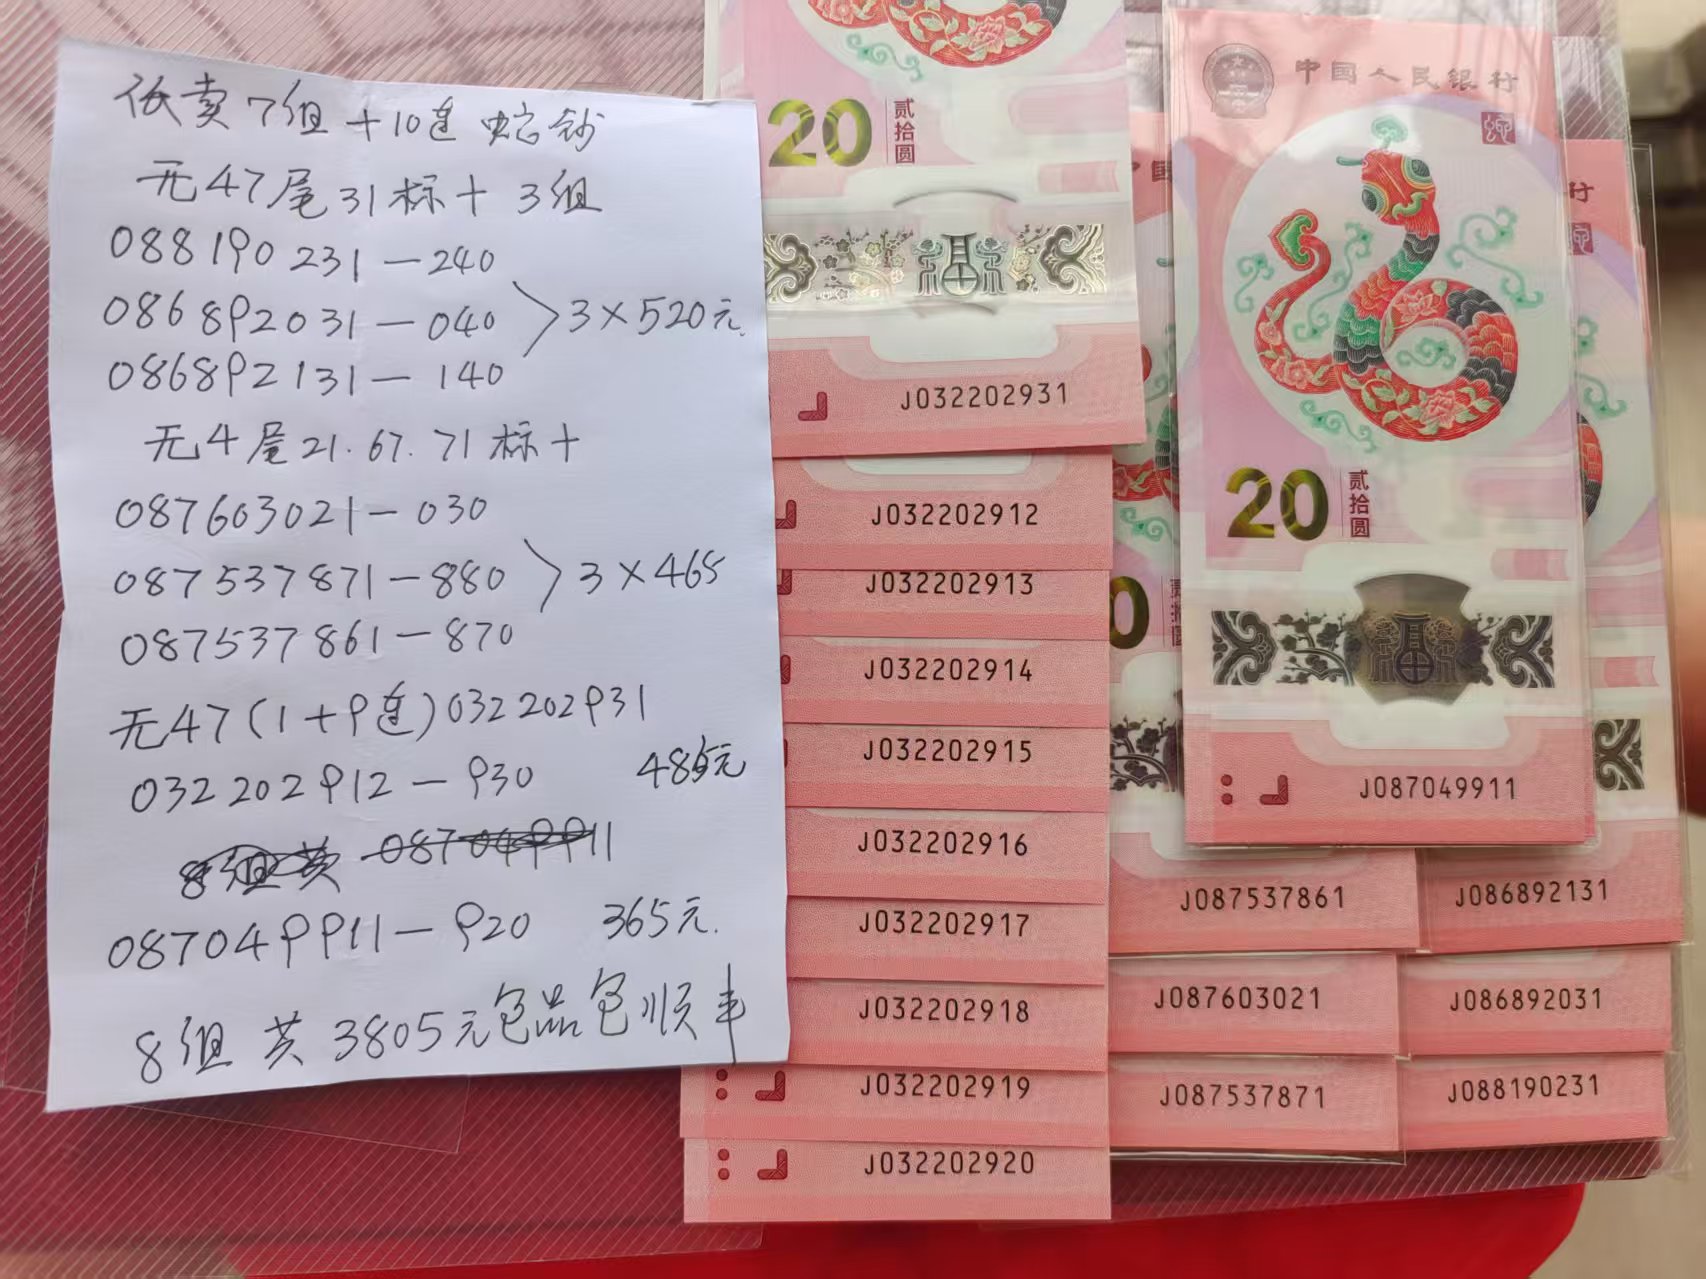 低卖7组+10连蛇钞
无47尾31标十 3组
088190231—240
086892031—040 >3×520元
086892131—140
无4尾21.67.71标十
087603021—030
087537871—880 >3×465
087537861—870
无47(1+9连)032202931
032202912—930 485元
087049911—920 365元.
8组共3805元包品包顺丰
20 贰拾圆
J032202931
J032202912
J032202913
J032202914
J032202915
J032202916
J032202917
J032202918
J032202919
J032202920
中国人民银行
20 贰拾圆
J087049911
行
0
J087537861
J087603021
J087537871
J086892131
J086892031
J088190231